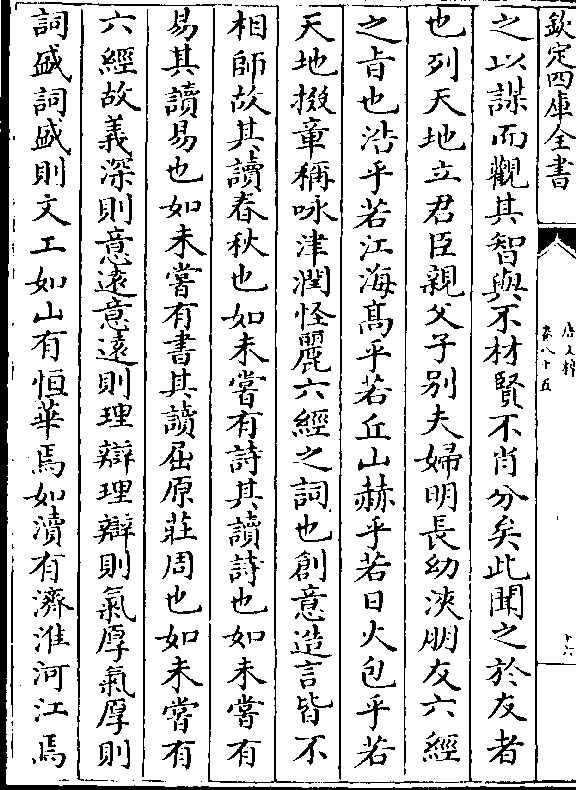 欽定四庫全書
唐文粹
卷八十五
十六
之以謀而觀其智與不材賢不肖分矣此聞之於友者
也列天地立君臣親父子别夫婦明長幼浹朋友六經
之㫖也浩乎若江海髙乎若丘山赫乎若日火包乎若
天地掇章稱咏津潤怪麗六經之詞也創意造言皆不
相師故其讀春秋也如未嘗有詩其讀詩也如未嘗有
易其讀易也如未嘗有書其讀屈原莊周也如未嘗有
六經故義深則意逺意逺則理辯理辯則氣厚氣厚則
詞盛詞盛則文工如山有恒華焉如瀆有濟淮河江焉